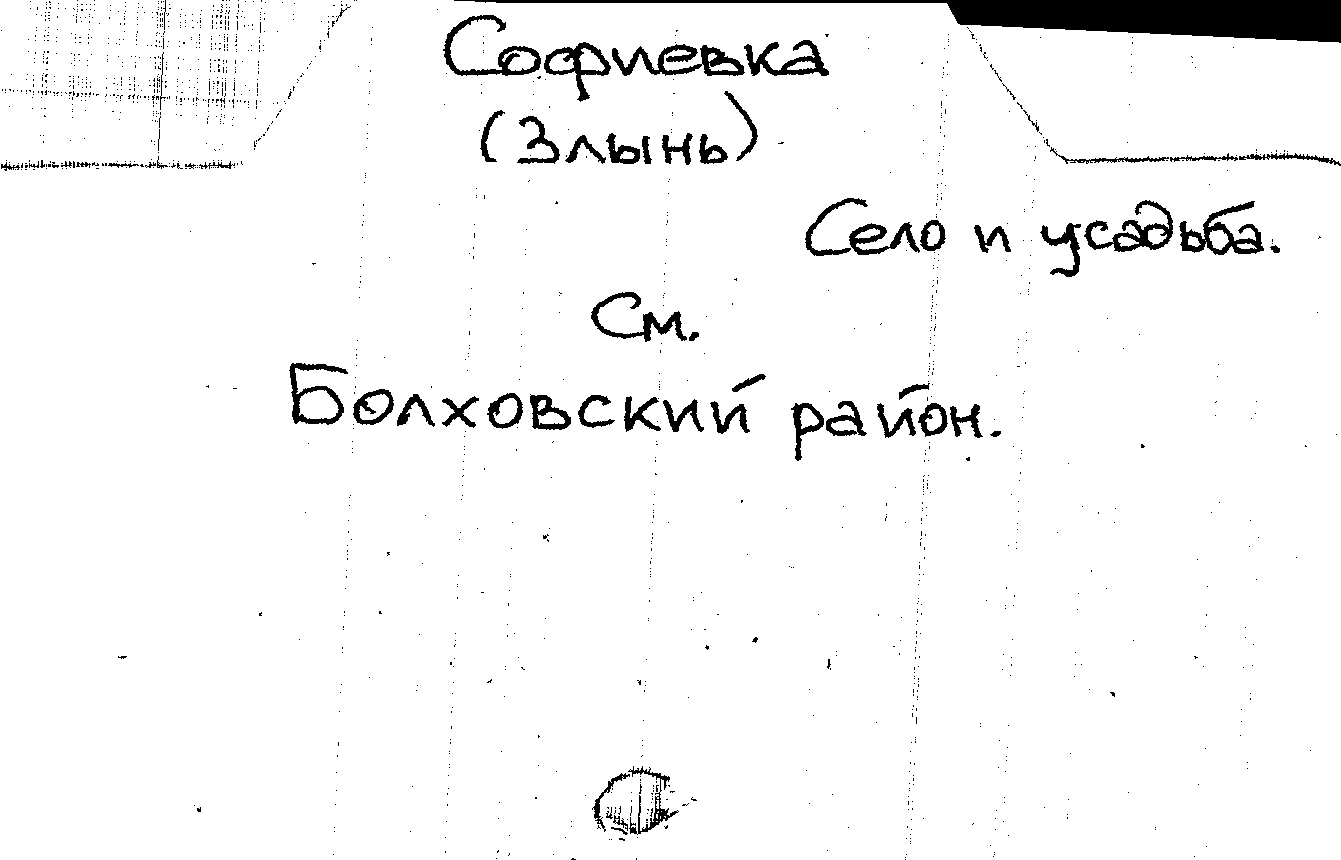 Софиевка
(Злынь)
Село и усадьба.
См.
Болховский район.